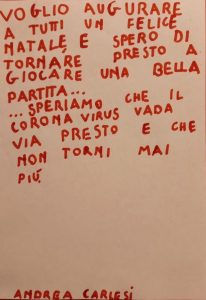 VOGLIO AUGURARE
A TUTTI UN FELICE
NATALE E SPERO DI
TORNARE PRESTO A
GIOCARE UNA BELLA
PARTITA...
...SPERIAMO CHE IL
CORONA VIRUS VADA
VIA PRESTO E CHE
NON TORNI MAI
PIÚ
ANDREA CARLESI